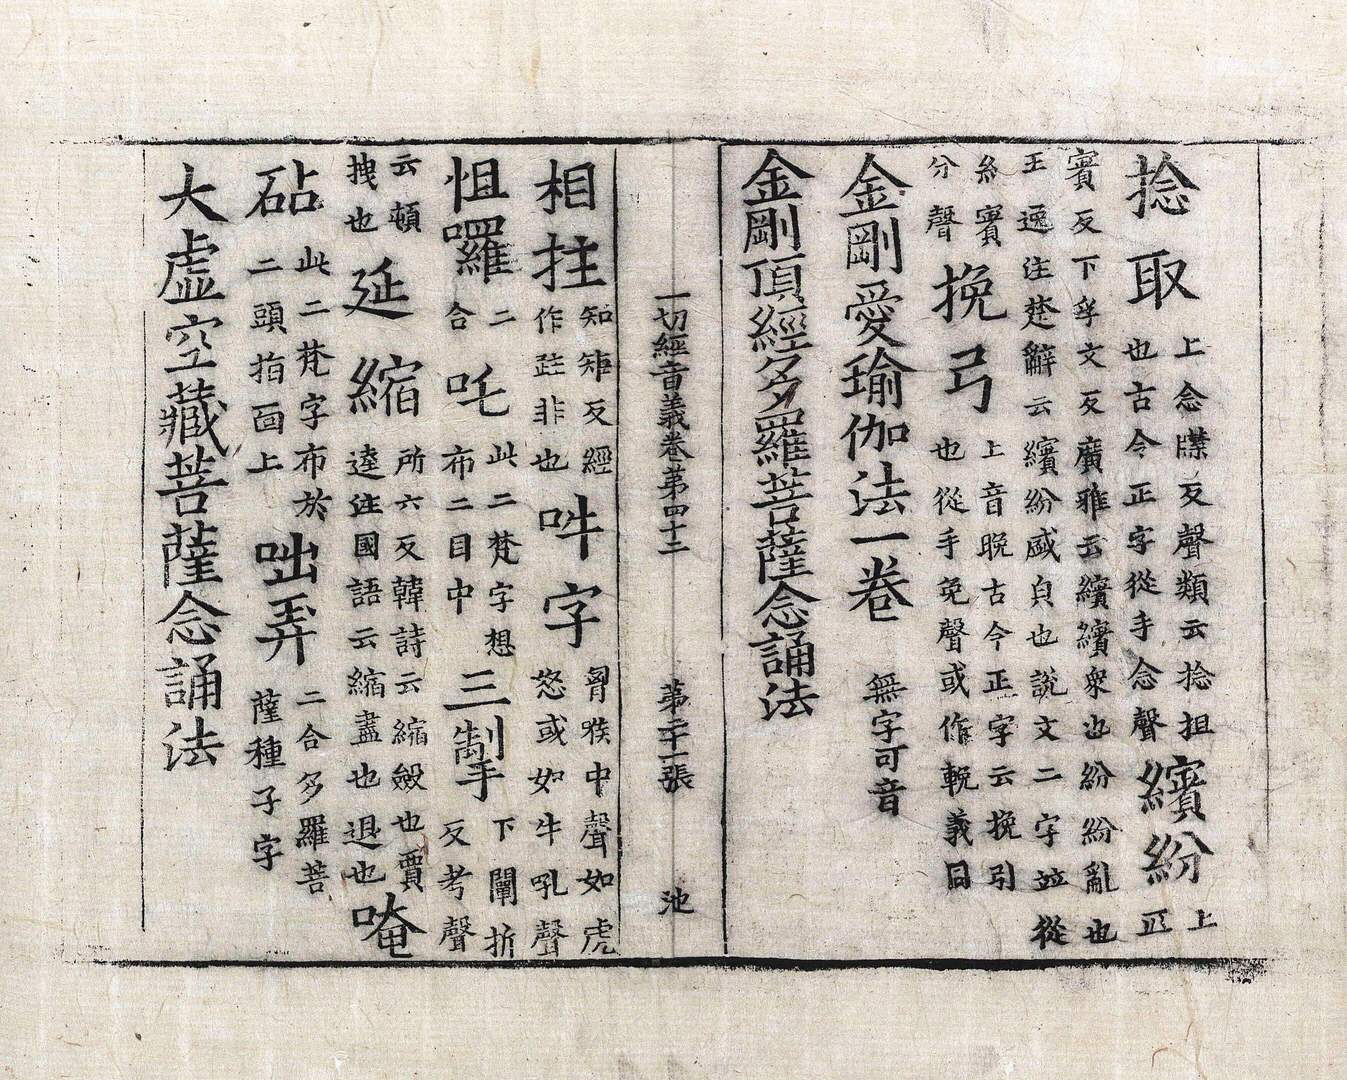 捻取上念牒反聲類云捻抯也古今正字從手念聲繽紛上匹
賓反下孚文反廣雅云繽繽衆也紛紛亂也
王逸注楚辭云繽紛盛皃也說文二字並從
糸賓分聲挽弓上音晚古今正字云挽引也從手免聲或作輓義同
金剛愛瑜伽法一卷 無字可音
金剛頂經多羅菩薩念誦法
一切經音義卷第四十二 第二十一張 池
相拄知矩反經作跓非也吽字胷喉中聲如虎怒或如牛吼聲
怛囉二合吒此二梵字想布二目中三掣下闡折反考聲
云頓拽也延縮所六反韓詩云縮斂也賈逵注國語云縮盡也退也唵
砧此二梵字布於二頭指面上咄弄二合多羅菩薩種子字
大虛空藏菩薩念誦法